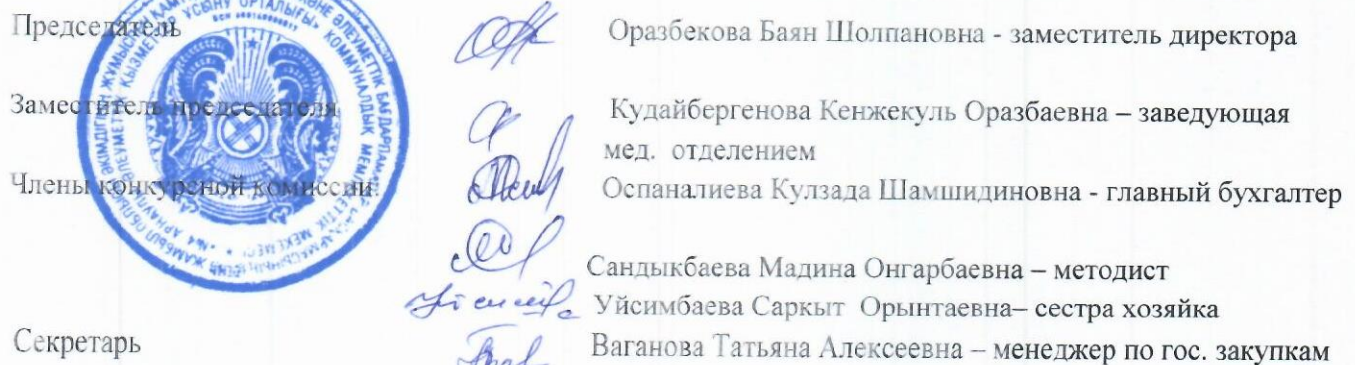 Председатель Оразбекова Баян Шолпановна - заместитель директора
Заместитель председателя Кудайбергенова Кенжекуль Оразбаевна – заведующая
мед. отделением
Члены конкурсной комиссии Оспаналиева Кулзада Шамшидиновна - главный бухгалтер
Сандыкбаева Мадина Онгарбаевна – методист
Уйсимбаева Саркыт Орынтаевна– сестра хозяйка
Секретарь Ваганова Татьяна Алексеевна – менеджер по гос. закупкам